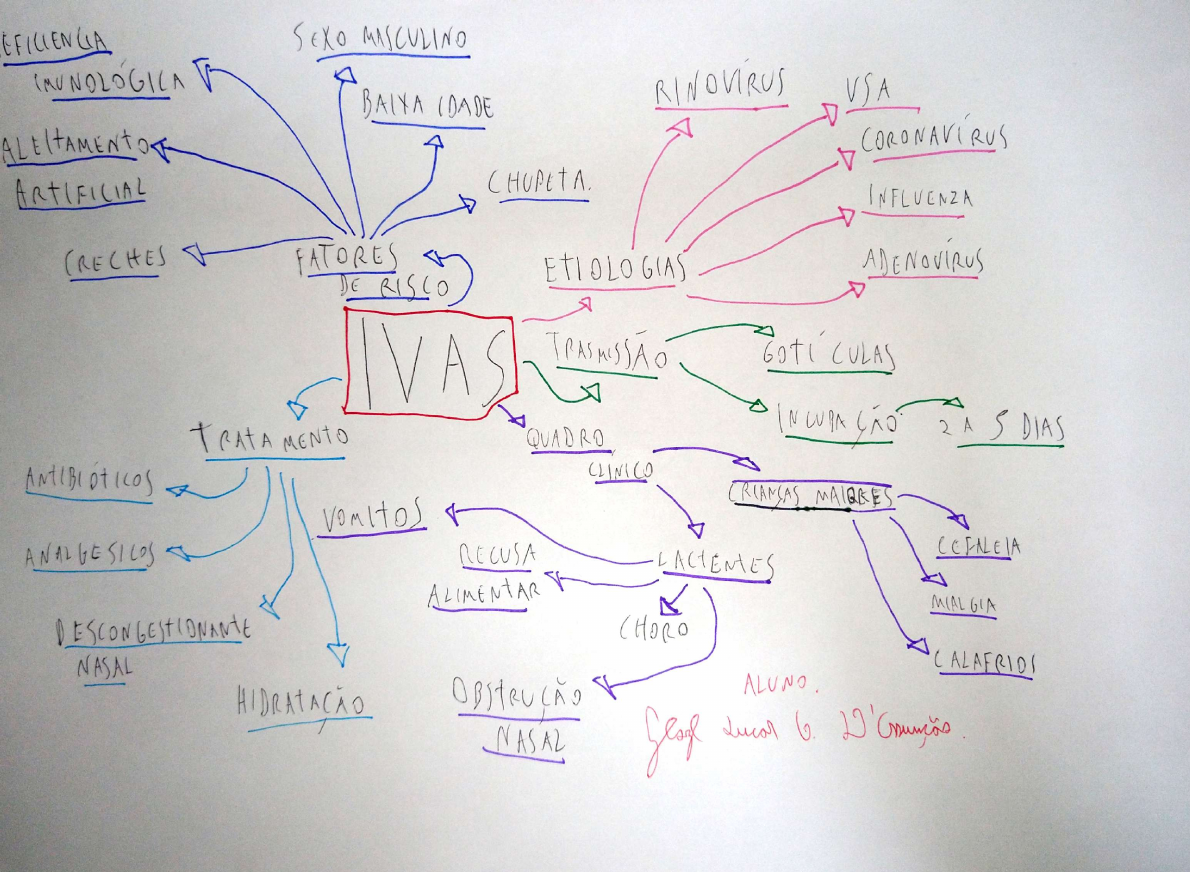 EFICIENCIA
IMUNOLÓGICA
ALEITAMENTO
ARTIFICIAL
CRECHES
SEXO MASCULINO
BAIXA IDADE
CHUPETA.
FATORES
DE RISCO
IVAS
ETIOLOGIAS
RINOVÍRUS
VSA
CORONAVÍRUS
INFLUENZA
ADENOVÍRUS
TRASMISSÃO
GOTÍCULAS
INCUBAÇÃO
2 A 5 DIAS
QUADRO
CLÍNICO
CRIANÇAS MAIORES
CEFALEIA
MIALGIA
CALAFRIOS
LACTENTES
VOMITOS
RECUSA
ALIMENTAR
CHORO
OBSTRUÇÃO
NASAL
TRATAMENTO
ANTIBIÓTICOS
ANALGESICOS
DESCONGESTIONANTE
NASAL
HIDRATAÇÃO
ALUNO.
Lucas G. D'